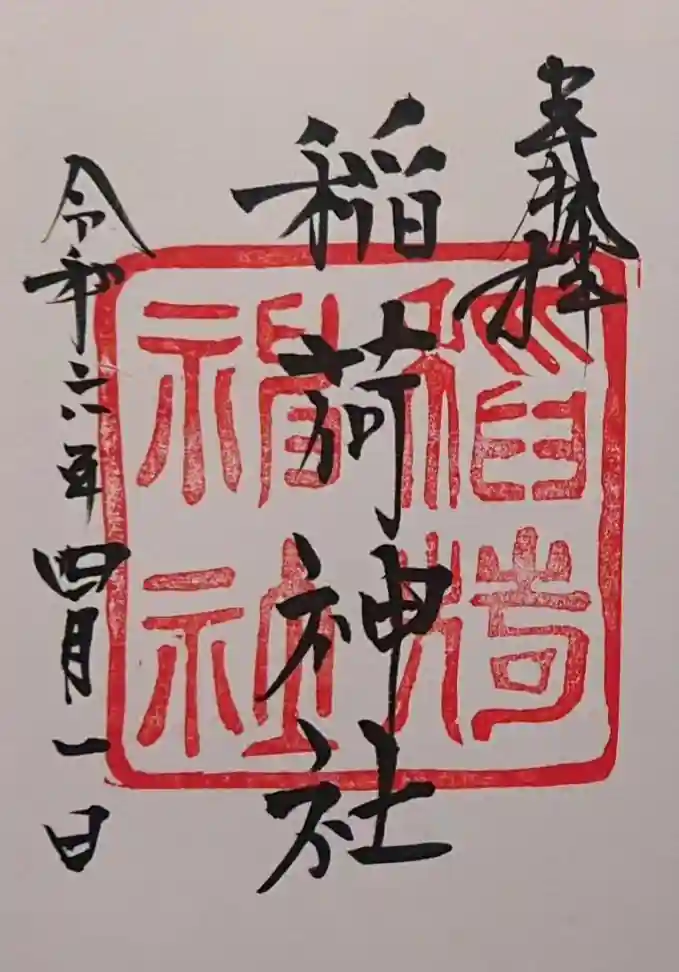 奉拝
稲荷神社
令和六年四月一日
稲荷神社